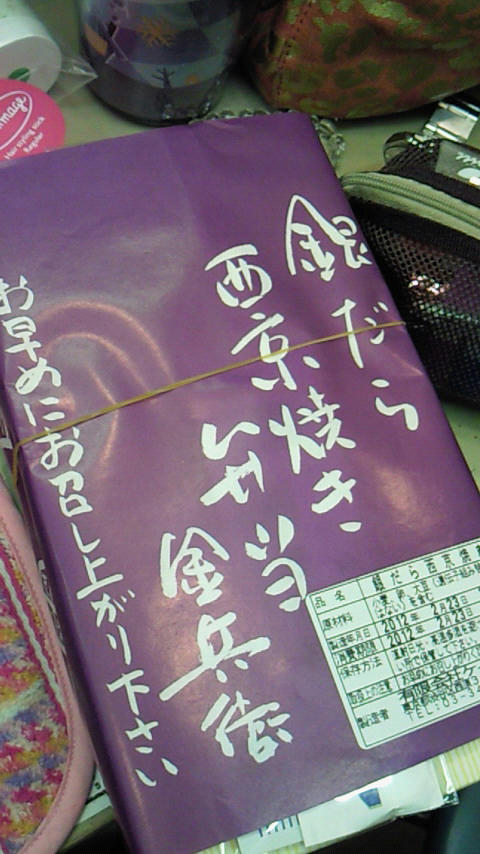 銀だら
西京焼き
弁当
金兵衛
お早めにお召し上がり下さい
品名 銀だら西京焼
原材料
製造年月日 2012年 2月23日
消費期限 2012年 2月23日
保存方法
製造者
TEL:03-3
mage
Hair styling stick
Regular